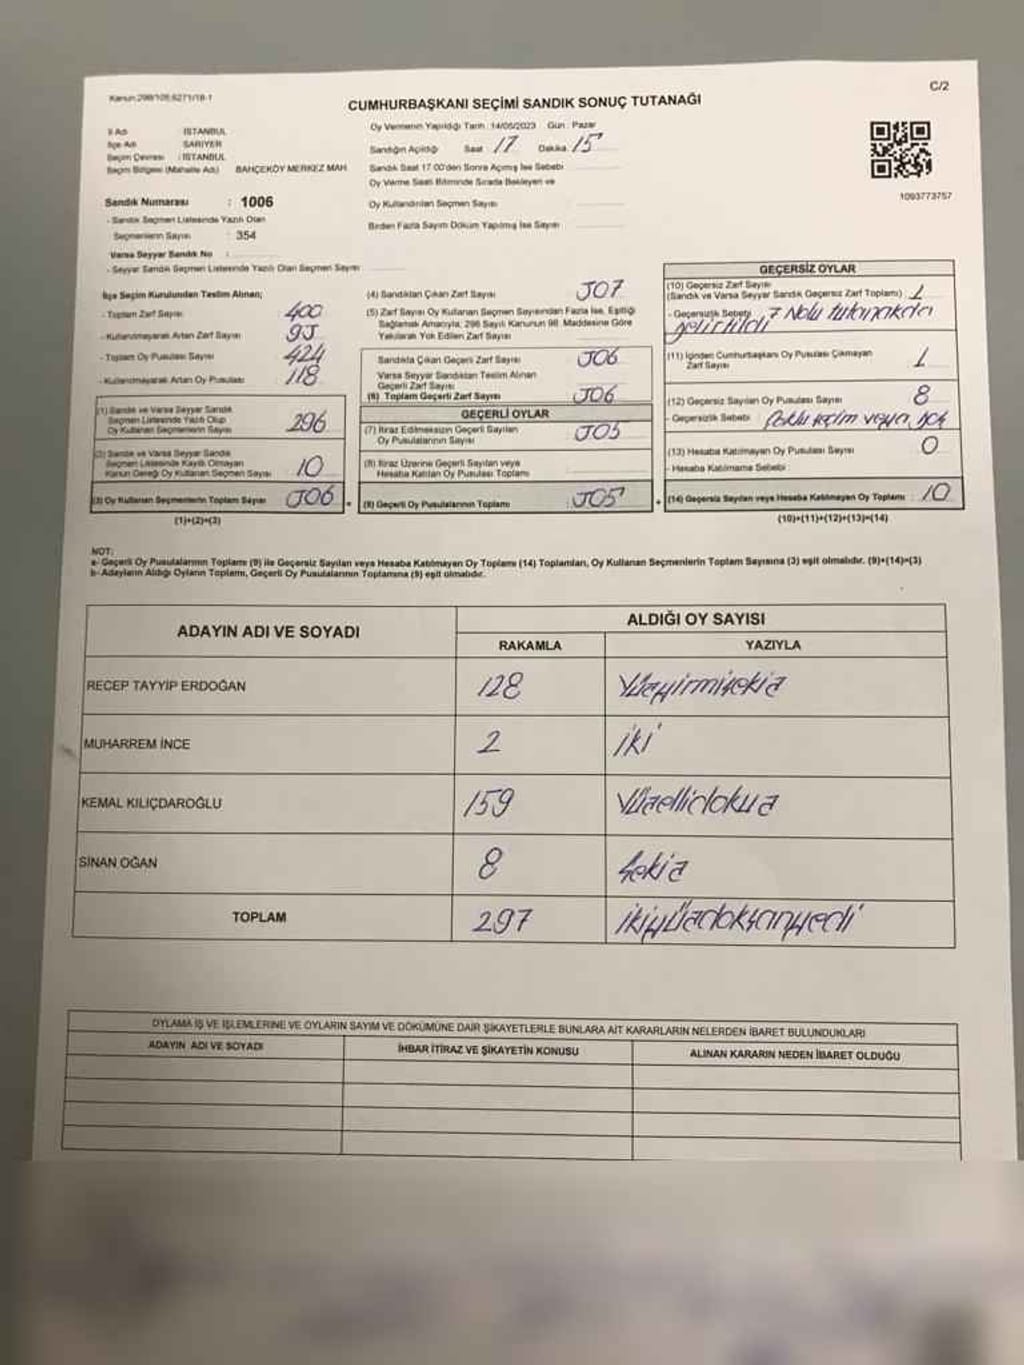 Kanun:298/109;6271/18-1
C/2
CUMHURBAŞKANI SEÇİMİ SANDIK SONUÇ TUTANAĞI
İl Adı : İSTANBUL
İlçe Adı : SARIYER
Seçim Çevresi : İSTANBUL
Seçim Bölgesi (Mahalle Adı) BAHÇEKÖY MERKEZ MAH
Sandık Numarası : 1006
- Sandık Seçmen Listesinde Yazılı Olan
Seçmenlerin Sayısı : 354
Varsa Seyyar Sandık No :
- Seyyar Sandık Seçmen Listesinde Yazılı Olan Seçmen Sayısı
Oy Vermenin Yapıldığı Tarih : 14/05/2023 Gün : Pazar
Sandığın Açıldığı Saat : 17 Dakika : 15
Sandık Saat 17:00'den Sonra Açımış İse Sebebi
Oy Verme Saati Bitiminde Sırada Bekleyen ve
Oy Kullandırılan Seçmen Sayısı
Birden Fazla Sayım Döküm Yapılmış İse Sayısı
1093773757
İlçe Seçim Kurulundan Teslim Alınan;
- Toplam Zarf Sayısı : 400
- Kullanılmayarak Artan Zarf Sayısı : 93
- Toplam Oy Pusulası Sayısı : 424
- Kullanılmayarak Artan Oy Pusulası : 118
(1) Sandık ve Varsa Seyyar Sandık
Seçmen Listesinde Yazılı Olup
Oy Kullanan Seçmenlerin Sayısı 296
(2) Sandık ve Varsa Seyyar Sandık
Seçmen Listesinde Kayıtlı Olmayan
Kanun Gereği Oy Kullanan Seçmen Sayısı 10
(3) Oy Kullanan Seçmenlerin Toplam Sayısı 306
(1)+(2)=(3)
(4) Sandıktan Çıkan Zarf Sayısı 307
(5) Zarf Sayısı Oy Kullanan Seçmen Sayısından Fazla İse, Eşitliği
Sağlamak Amacıyla; 298 Sayılı Kanunun 98. Maddesine Göre
Yakılarak Yok Edilen Zarf Sayısı
Sandıkta Çıkan Geçerli Zarf Sayısı 306
Varsa Seyyar Sandıktan Teslim Alınan
Geçerli Zarf Sayısı
(6) Toplam Geçerli Zarf Sayısı 306
GEÇERLİ OYLAR
(7) İtiraz Edilmeksizin Geçerli Sayılan
Oy Pusulalarının Sayısı 305
(8) İtiraz Üzerine Geçerli Sayılan veya
Hesaba Katılan Oy Pusulası Toplamı
(9) Geçerli Oy Pusulalarının Toplamı 305
GEÇERSİZ OYLAR
(10) Geçersiz Zarf Sayısı
(Sandık ve Varsa Seyyar Sandık Geçersiz Zarf Toplamı) : 1
- Geçersizlik Sebebi 7 Nolu tutanakda
gelirtildi
(11) İçinden Cumhurbaşkanı Oy Pusulası Çıkmayan
Zarf Sayısı 1
(12) Geçersiz Sayılan Oy Pusulası Sayısı 8
- Geçersizlik Sebebi : veya
(13) Hesaba Katılmayan Oy Pusulası Sayısı 0
- Hesaba Katılmama Sebebi
(14) Geçersiz Sayılan veya Hesaba Katılmayan Oy Toplamı : 10
(10)+(11)+(12)+(13)=(14)
NOT:
a- Geçerli Oy Pusulalarının Toplamı (9) ile Geçersiz Sayılan veya Hesaba Katılmayan Oy Toplamı (14) Toplamları, Oy Kullanan Seçmenlerin Toplam Sayısına (3) eşit olmalıdır. (9)+(14)=(3)
b- Adayların Aldığı Oyların Toplamı, Geçerli Oy Pusulalarının Toplamına (9) eşit olmalıdır.
ADAYIN ADI VE SOYADI
ALDIĞI OY SAYISI
RAKAMLA YAZIYLA
RECEP TAYYİP ERDOĞAN 128 Yüzyirmisekiz
MUHARREM İNCE 2 iki
KEMAL KILIÇDAROĞLU 159 Yüzellidokuz
SİNAN OĞAN 8 Sekiz
TOPLAM 297 ikiyüzdoksanyedi
OYLAMA İŞ VE İŞLEMLERİNE VE OYLARIN SAYIM VE DÖKÜMÜNE DAİR ŞİKAYETLERLE BUNLARA AİT KARARLARIN NELERDEN İBARET BULUNDUKLARI
ADAYIN ADI VE SOYADI İHBAR İTİRAZ VE ŞİKAYETİN KONUSU ALINAN KARARIN NEDEN İBARET OLDUĞU